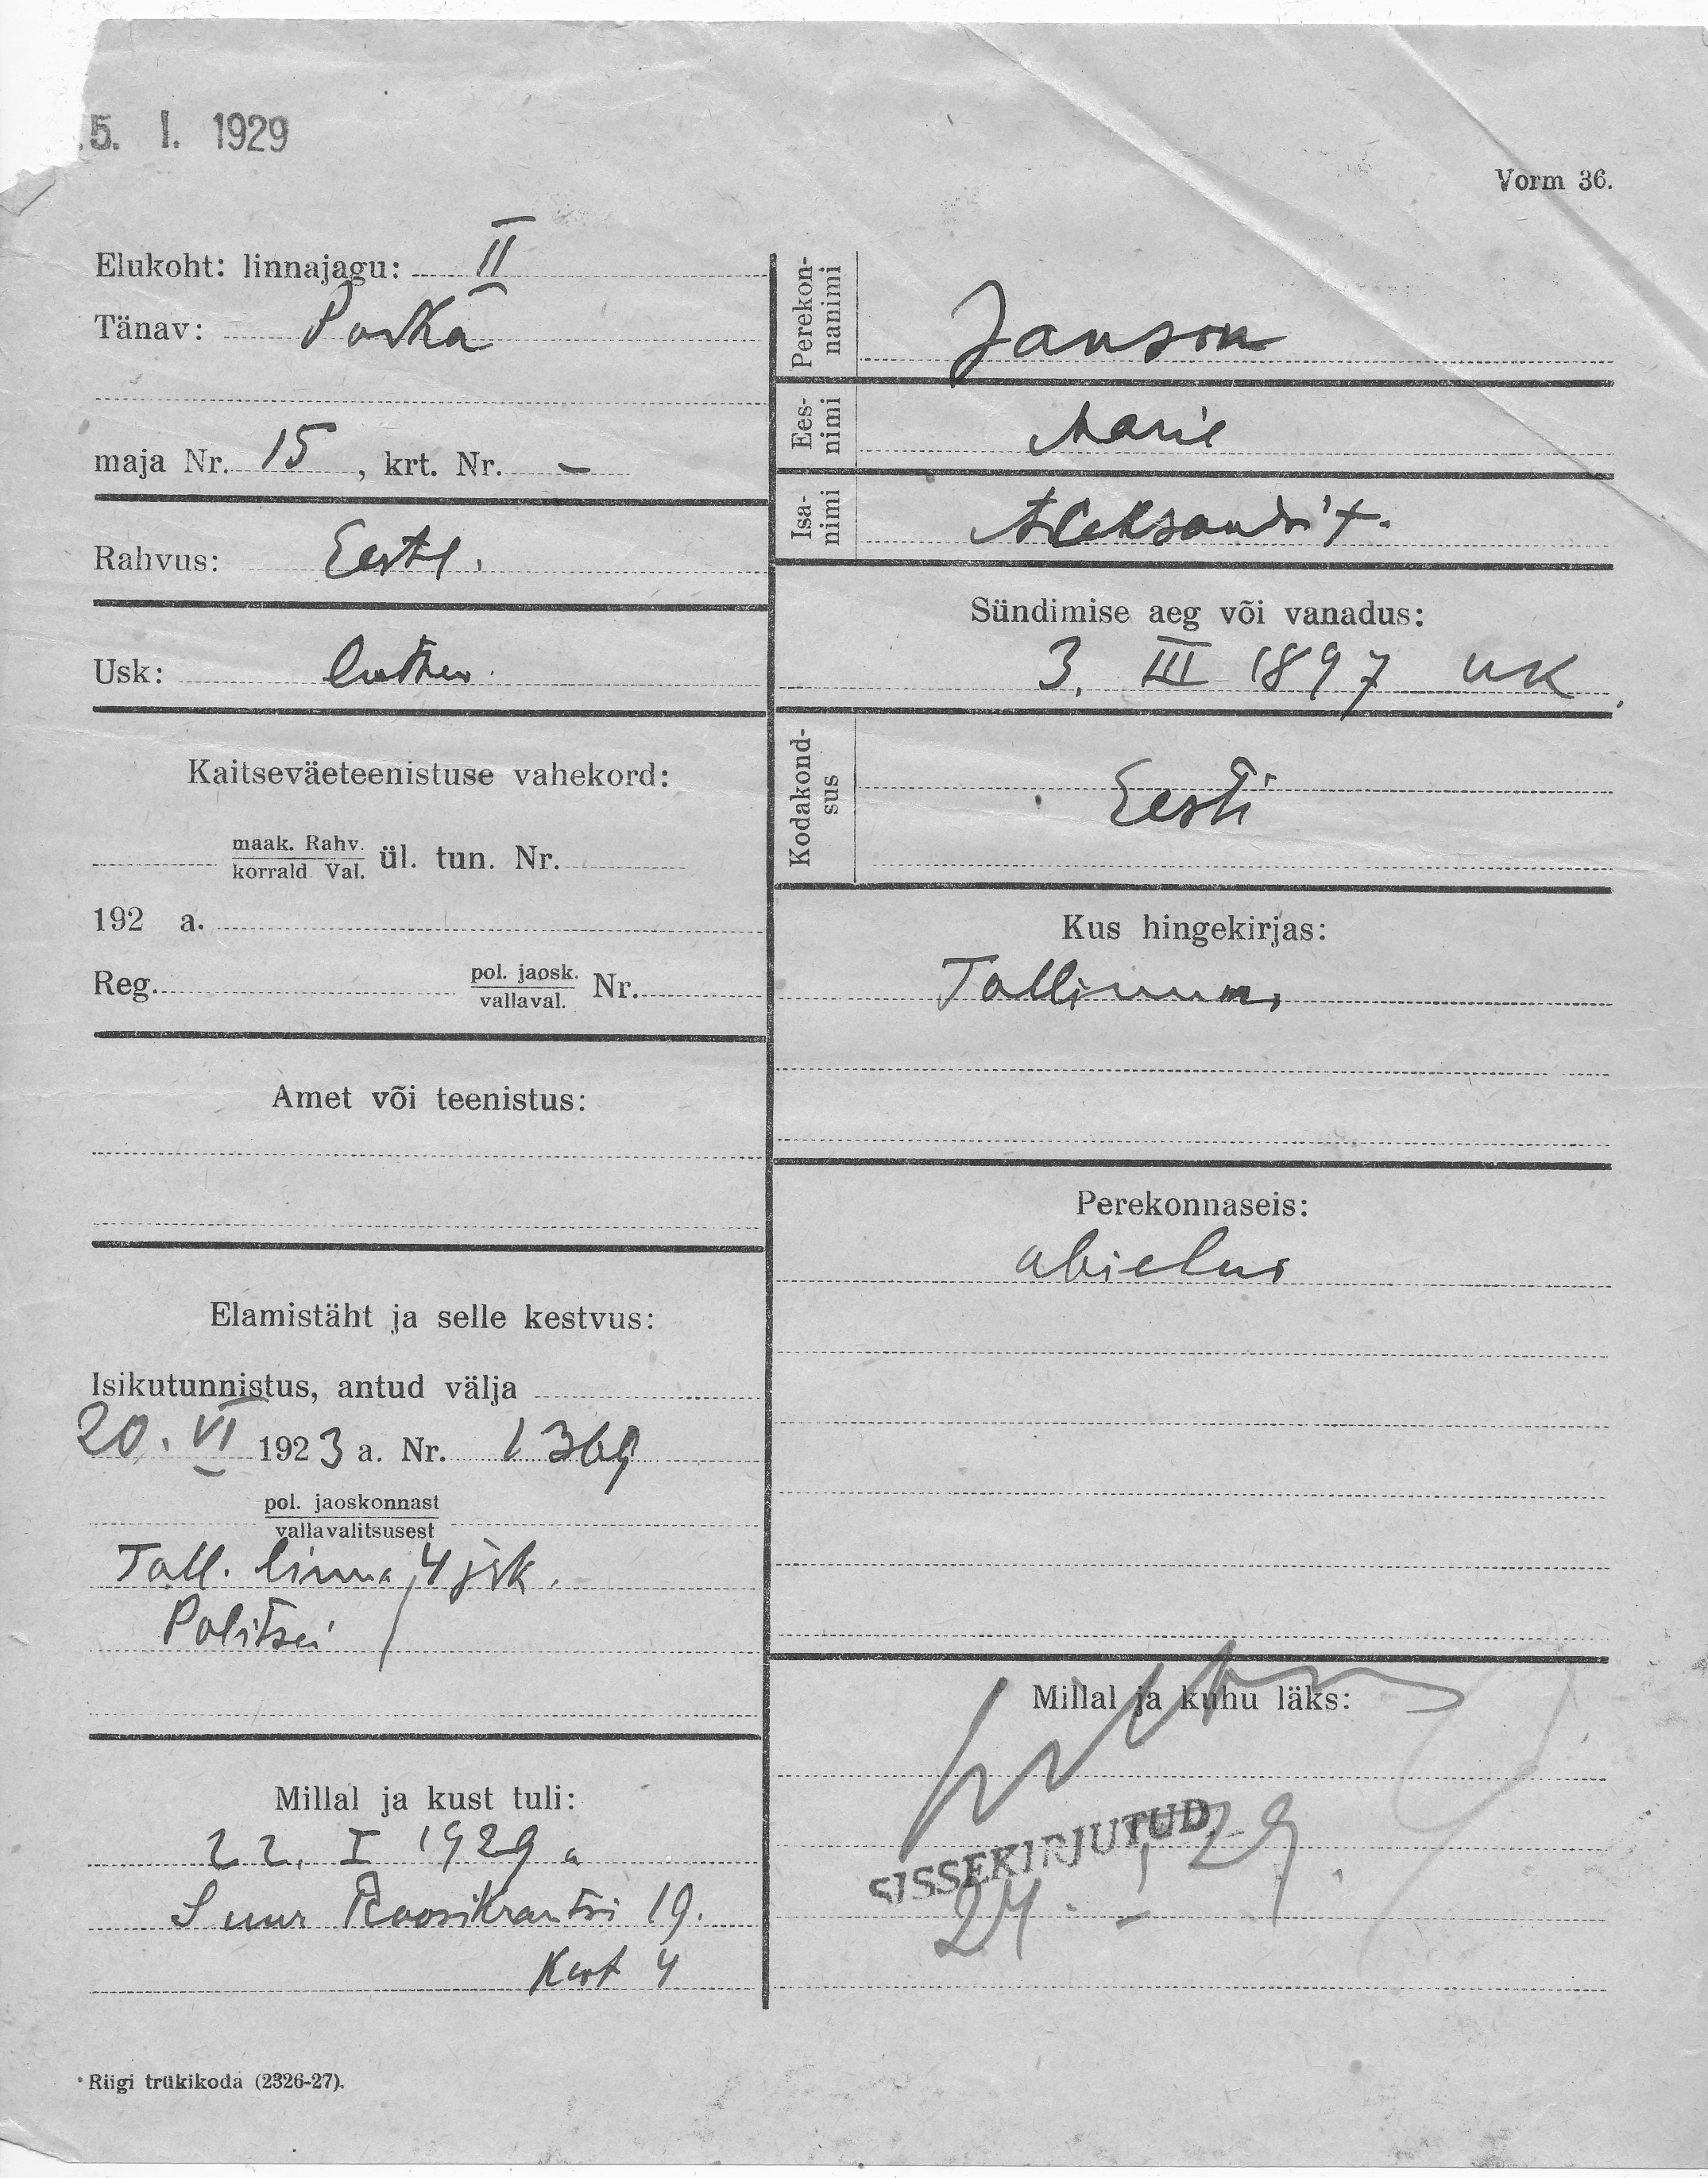 5. I. 1929
Vorm 36.
Elukoht: linnajagu: II
Tänav: Poska
maja Nr. 15, krt. Nr. –
Rahvus: Eestl.
Usk: luther.
Kaitseväeteenistuse vahekord:
maak. Rahv.
korrald. Val. ül. tun. Nr.
192 a.
Reg. pol. jaosk.
vallaval. Nr.
Amet või teenistus:
Elamistäht ja selle kestvus:
Isikutunnistus, antud välja
20. VI 1923 a. Nr. 1369
pol. jaoskonnast
vallavalitsusest
Tall. linna 4 jsk.
Politsei
Millal ja kust tuli:
22. I 1929 a
Suur Roosikrantsi 19.
Kort 4
Perekon-
nanimi Janson
Ees-
nimi Marie
Isa-
nimi Aleksandri t.
Sündimise aeg või vanadus:
3. III 1897 UK.
Kodakond-
sus Eesti
Kus hingekirjas:
Tallinnas
Perekonnaseis:
abielus
Millal ja kuhu läks:
SISSEKIRJUTUD
24. I 29.
Riigi trükikoda (2326-27).